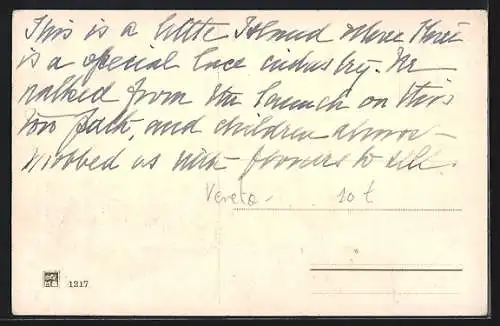 This is a little Island where there
is a special lace industry. We
walked from the launch on this
tow path, and children almos-
mobbed us with flowers to sell.
Veneto - 10 t
1217